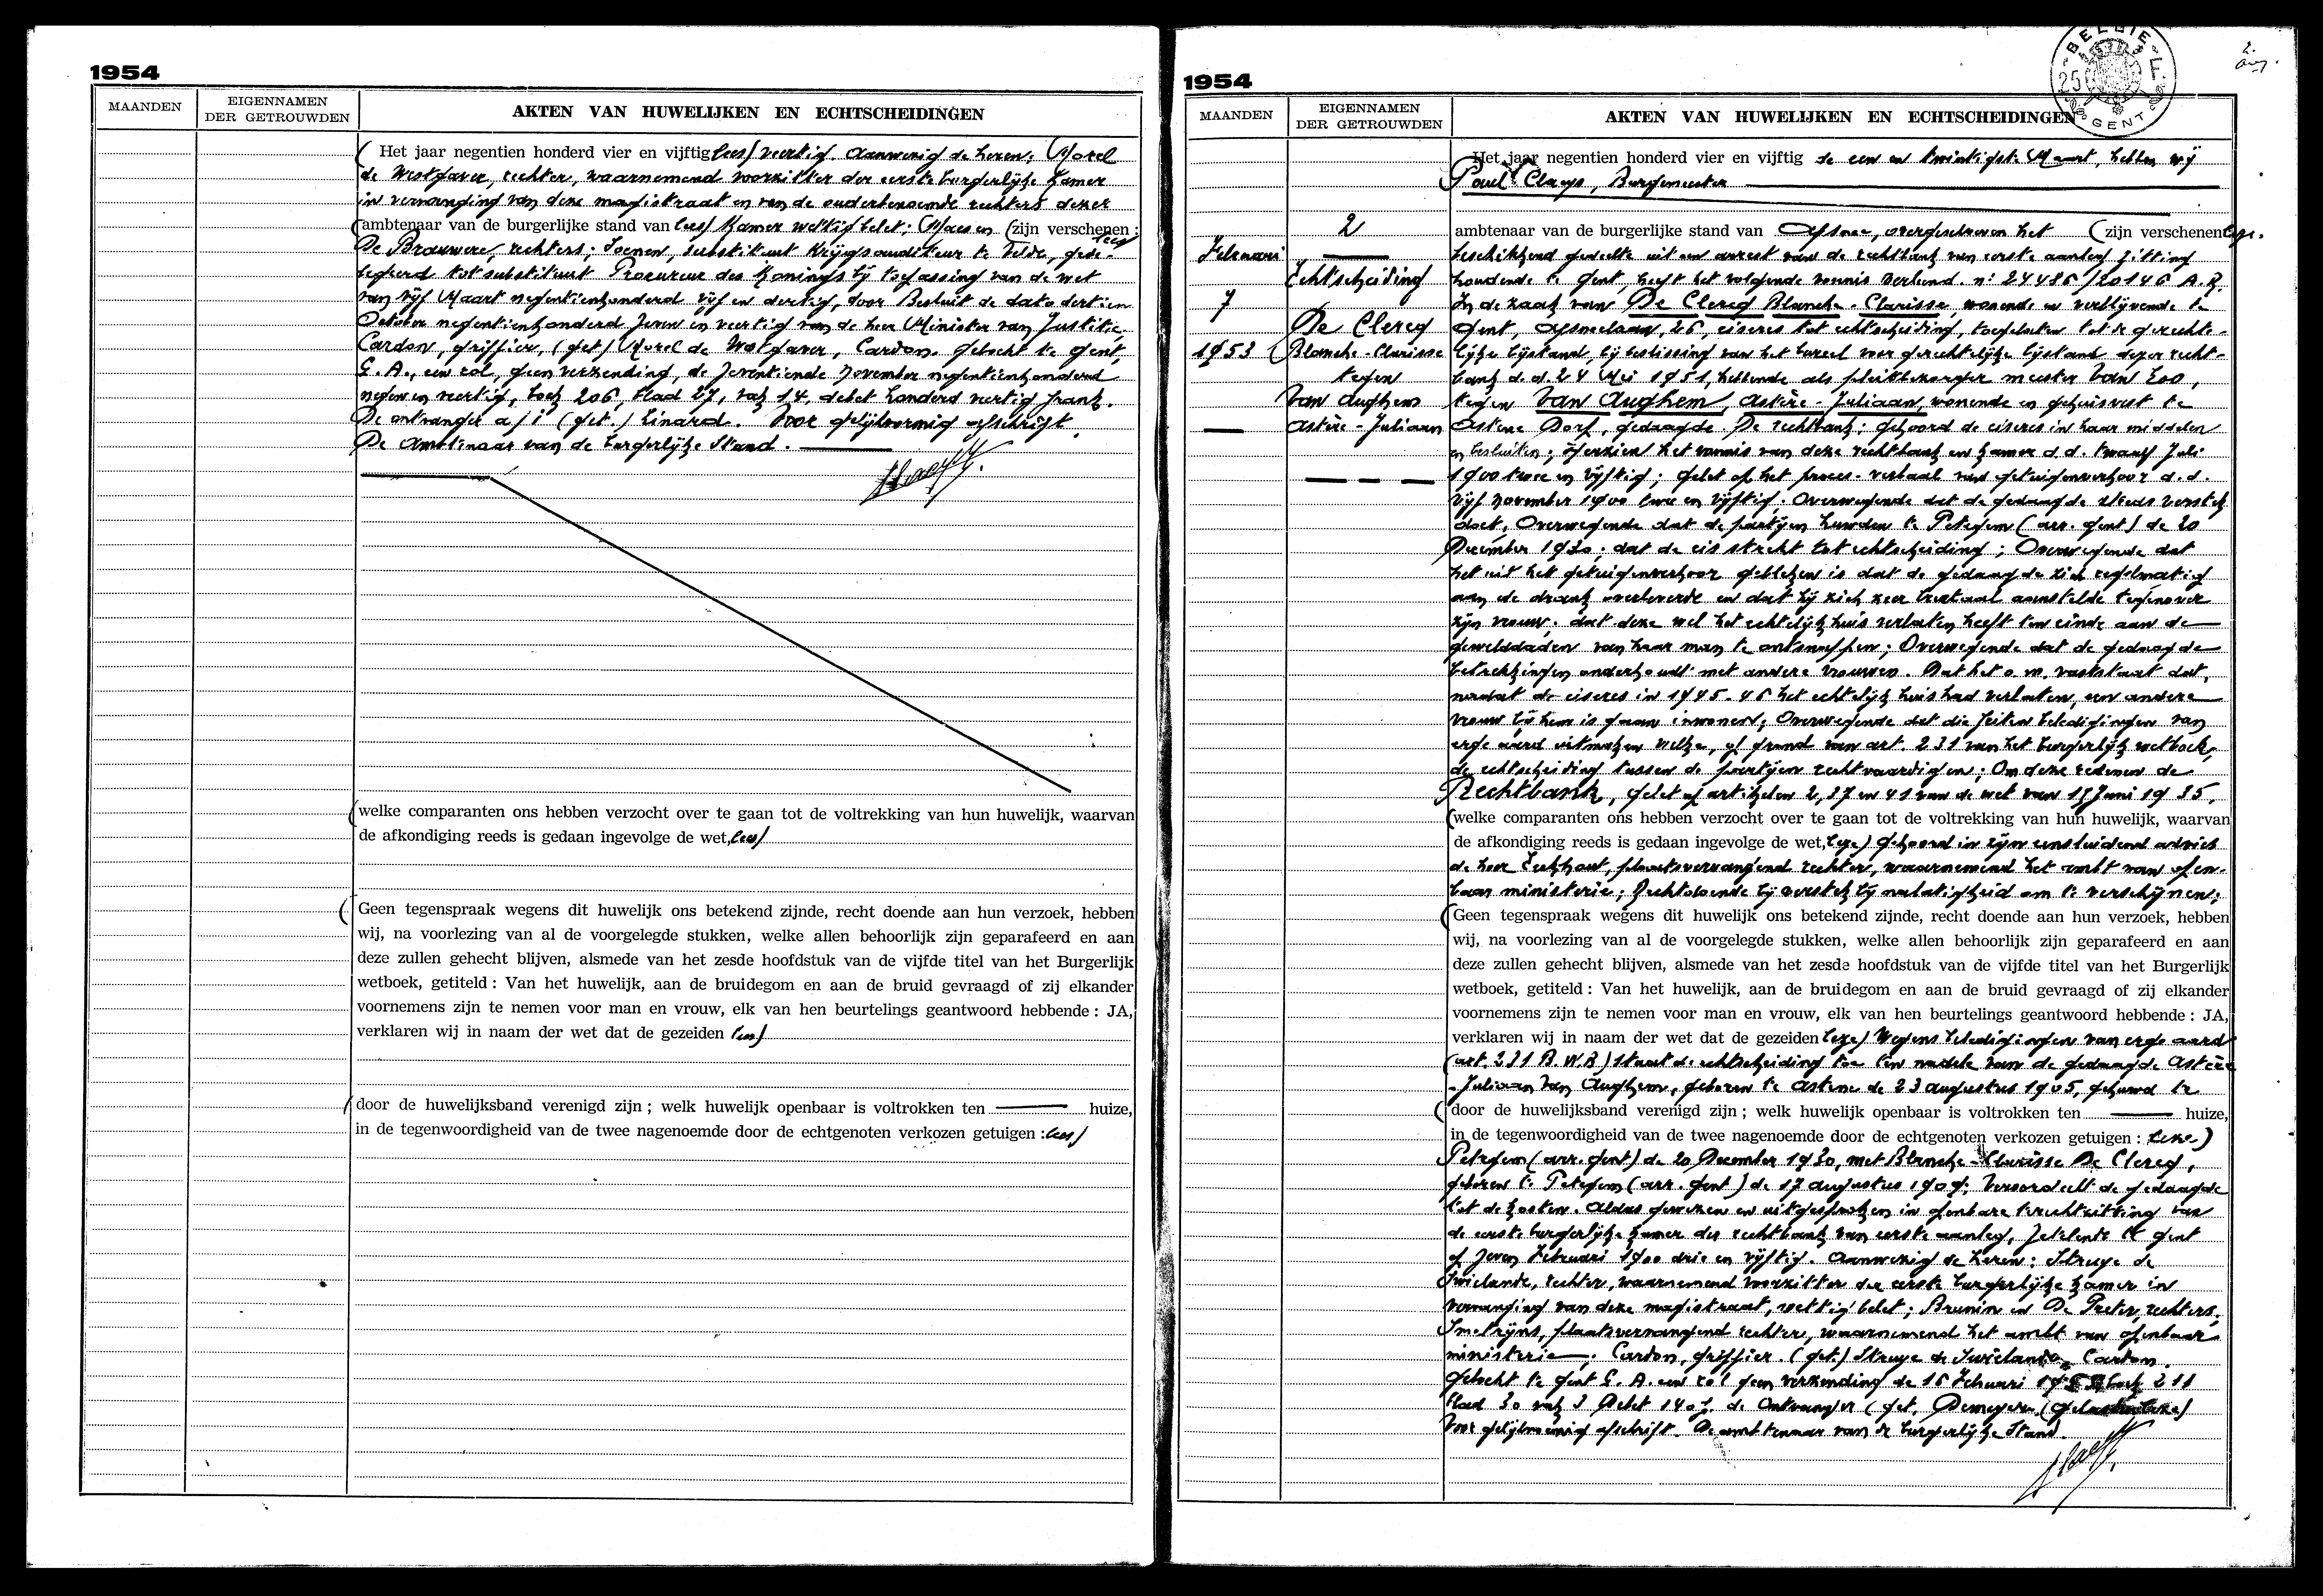 1954
MAANDEN
EIGENNAMEN
DER GETROUWDEN
AKTEN VAN HUWELIJKEN EN ECHTSCHEIDINGEN
( Het jaar negentien honderd vier en vijftig lees) veertig. Aanwezig de heren: Morel
de Westgaver, rechter, waarnemend voorzitter der eerste burgerlijke kamer
in vervanging van deze magistraat en van de ouderbenoemde rechters dezer
(ambtenaar van de burgerlijke stand van lees) kamer wettig belet; Maesen (zijn verschenen: lees
De Brouwere, rechters; Soenen, substituut Krijgsauditeur te Velde, gede-
legeerd tot substituut Procureur des Konings bij toepassing van de wet
van vijf Maart negentienhonderd vijf en dertig, door Besluit de dato dertien
October negentienhonderd zeven en veertig van de heer Minister van Justitie,
Cardon, griffier, (get) Morel de Westgaver, Cardon. Geboekt te Gent,
G. A., een rol, geen verzending, de zeventiende november negentienhonderd
negen en veertig, boek 206, blad 27, vak 14, debet honderd veertig frank.
De ontvanger a/i (get.) Linard. Voor gelijkvormig afschrift.
De Ambtenaar van de burgerlijke Stand.
(welke comparanten ons hebben verzocht over te gaan tot de voltrekking van hun huwelijk, waarvan
de afkondiging reeds is gedaan ingevolge de wet, lees)
( Geen tegenspraak wegens dit huwelijk ons betekend zijnde, recht doende aan hun verzoek, hebben
wij, na voorlezing van al de voorgelegde stukken, welke allen behoorlijk zijn geparafeerd en aan
deze zullen gehecht blijven, alsmede van het zesde hoofdstuk van de vijfde titel van het Burgerlijk
wetboek, getiteld : Van het huwelijk, aan de bruidegom en aan de bruid gevraagd of zij elkander
voornemens zijn te nemen voor man en vrouw, elk van hen beurtelings geantwoord hebbende : JA,
verklaren wij in naam der wet dat de gezeiden lees)
(door de huwelijksband verenigd zijn ; welk huwelijk openbaar is voltrokken ten — huize,
in de tegenwoordigheid van de twee nagenoemde door de echtgenoten verkozen getuigen : lees)
1954
BELGIE
25 F.
GENT
2.
MAANDEN
EIGENNAMEN
DER GETROUWDEN
AKTEN VAN HUWELIJKEN EN ECHTSCHEIDINGEN
Februari
7
1953
2
Echtscheiding
De Clercq
Blanche-Clarisse
tegen
Van Aughem
Astère-Juliaan
Het jaar negentien honderd vier en vijftig de een en twintigste Maart, hebben wij
Paul Claeys, Burgemeester
ambtenaar van de burgerlijke stand van Afsnee, overgeschreven het (zijn verschenen leze.
beschikkend gedeelte uit een arrest van de rechtbank van eerste aanleg zitting
houdende te Gent, heeft het volgende vonnis verleend. n: 24486/20146 A.R.
In de zaak van De Clercq Blanche-Clarisse, wonende en verblijvende te
Gent, Afsneelaan, 26, eiseres tot echtscheiding, toegelaten tot de gerechte-
lijke bijstand, bij beslissing van het bureel voor gerechtelijke bijstand dezer recht-
bank d.d. 24 Mei 1951, hebbende als pleitbezorger meester Van Loo,
tegen Van Aughem, Astère-Juliaan, wonende en gehuisvest te
Astene Dorp, gedaagde. De rechtbank; gehoord de eiseres in haar middelen
en besluiten; Herzien het vonnis van deze rechtbank en kamer d.d. twaalf Juli
1900 twee en vijftig; gelet op het proces-verbaal van getuigenverhoor d.d.
vijf november 1900 twee en vijftig; Overwegende dat de gedaagde steeds verstek
doet, Overwegende dat de partijen huwden te Petegem (arr. Gent) de 20
December 1930; dat de eis strekt tot echtscheiding; Overwegende dat
het uit het getuigenverhoor gebleken is dat de gedaagde zich regelmatig
aan de drank overleverde en dat hij zich zeer brutaal aanstelde tegenover
zijn vrouw; dat deze wel het echtelijk huis verlaten heeft ten einde aan de
gewelddaden van haar man te ontsnappen; Overwegende dat de gedaagde
betrekkingen onderhoudt met andere vrouwen. Dat het o.m. vaststaat dat,
nadat de eiseres in 1945-46 het echtelijk huis had verlaten, een andere
vrouw bij hem is gaan inwonen; Overwegende dat die feiten beledigingen van
erge aard uitmaken welke, op grond van art. 231 van het burgerlijk wetboek,
de echtscheiding tussen de partijen rechtvaardigen; Om deze redenen de
Rechtbank, gelet op artikelen 2, 37 en 41 van de wet van 15 Juni 1935,
(welke comparanten ons hebben verzocht over te gaan tot de voltrekking van hun huwelijk, waarvan
de afkondiging reeds is gedaan ingevolge de wet, leze) gehoord in zijn eensluidend advies
de heer Eeckhout, plaatsvervangend rechter, waarnemend het ambt van open-
baar ministerie; Rechtdoende bij verstek bij nalatigheid om te verschijnen;
(Geen tegenspraak wegens dit huwelijk ons betekend zijnde, recht doende aan hun verzoek, hebben
wij, na voorlezing van al de voorgelegde stukken, welke allen behoorlijk zijn geparafeerd en aan
deze zullen gehecht blijven, alsmede van het zesde hoofdstuk van de vijfde titel van het Burgerlijk
wetboek, getiteld : Van het huwelijk, aan de bruidegom en aan de bruid gevraagd of zij elkander
voornemens zijn te nemen voor man en vrouw, elk van hen beurtelings geantwoord hebbende : JA,
verklaren wij in naam der wet dat de gezeiden leze) Wegens beledigingen van erge aard
(art. 231 B.W.B) staat de echtscheiding toe ten nadele van de gedaagde Astère
-Juliaan Van Aughem, geboren te Astene de 23 augustus 1905, gehuwd te
(door de huwelijksband verenigd zijn ; welk huwelijk openbaar is voltrokken ten — huize,
in de tegenwoordigheid van de twee nagenoemde door de echtgenoten verkozen getuigen : leze)
Petegem (arr. Gent) de 20 December 1930, met Blanche-Clarisse De Clercq,
geboren te Petegem (arr. Gent) de 17 augustus 1909; Veroordeelt de gedaagde
tot de kosten. Aldus gewezen en uitgesproken in openbare terechtzitting van
de eerste burgerlijke kamer der rechtbank van eerste aanleg, zetelende te Gent
op zeven Februari 1900 drie en vijftig. Aanwezig de heren: Struye de
Swielande, rechter, waarnemend voorzitter der eerste burgerlijke kamer in
vervanging van deze magistraat, wettig belet; Brunin en De Preter, rechters,
Smetrijns, plaatsvervangend rechter, waarnemend het ambt van openbaar
ministerie; Cardon, griffier. (get.) Struye de Swielande, Cardon.
Geboekt te Gent G. A. een rol geen verzending de 16 Februari boek 211
blad 30 vak 3 Debet 140 f. de Ontvanger (get. Demeyere
Voor gelijkvormig afschrift. De ambtenaar van de burgerlijke Stand.